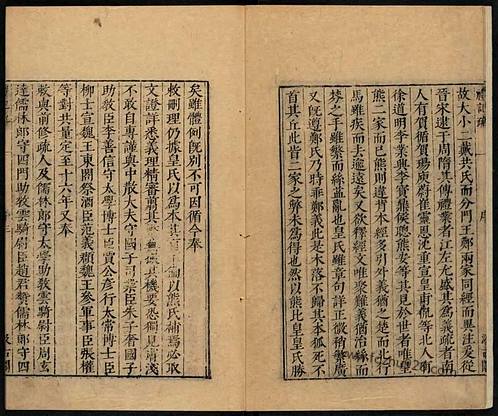 禮記疏 序 汲古閣
故大小二戴共氏而分門王鄭兩家同經而異注爰從
晉宋逮于周隋其傳禮業者江左尤盛其為義疏者南
人有賀循賀瑒庾蔚崔靈恩沈重宣皇甫侃等北人有
徐道明李業興李寶鼎侯聰熊安等其見於世者唯皇
熊二家而已熊則違背本經多引外義猶之楚而北行
馬雖疾而去逾遠矣又欲釋經文唯聚難義猶治絲而
棼之手雖繁而絲益亂也皇氏雖章句詳正微稍繁廣
又既遵鄭氏乃時乖鄭義此是木落不歸其本狐死不
首其丘此皆二家之弊未為得也然以熊比皇皇氏勝
矣雖體例既別不可因循今奉
敕刪理仍據皇氏以為本其有不備以熊氏補焉必取
文證詳悉義理精審翦其繁蕪撮其機要恐獨見膚淺
不敢自專謹與中散大夫守國子司業臣朱子奢國子
助教臣李善信守太學博士臣賈公彥行太常博士臣
柳士宣魏王東閣祭酒臣范義頵魏王參軍事臣張權
等對共量定至十六年又奉
敕與前修疏人及儒林郎守太學助教雲騎尉臣周玄
達儒林郎守四門助教雲騎尉臣趙君贊儒林郎守四